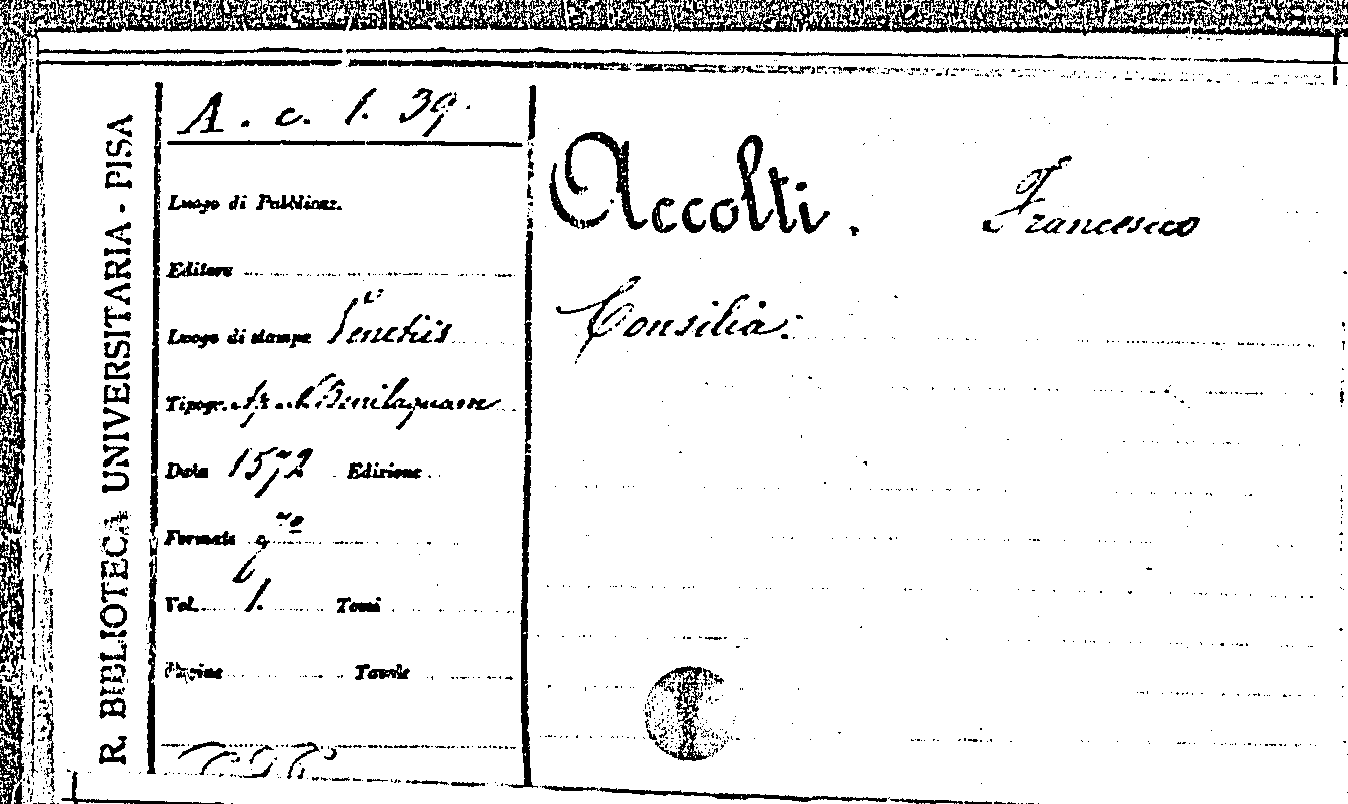 R. BIBLIOTECA UNIVERSITARIA - PISA
A. c. 1. 39.
Luogo di Pubblicaz.
Editore
Luogo di stampa Venetiis
Tipogr. Ap. N. Benilaquam
Data 1572 Edizione
Formato
Vol. 1. Tomi
Pagine Tavole
Accolti. Francesco
Consilia: